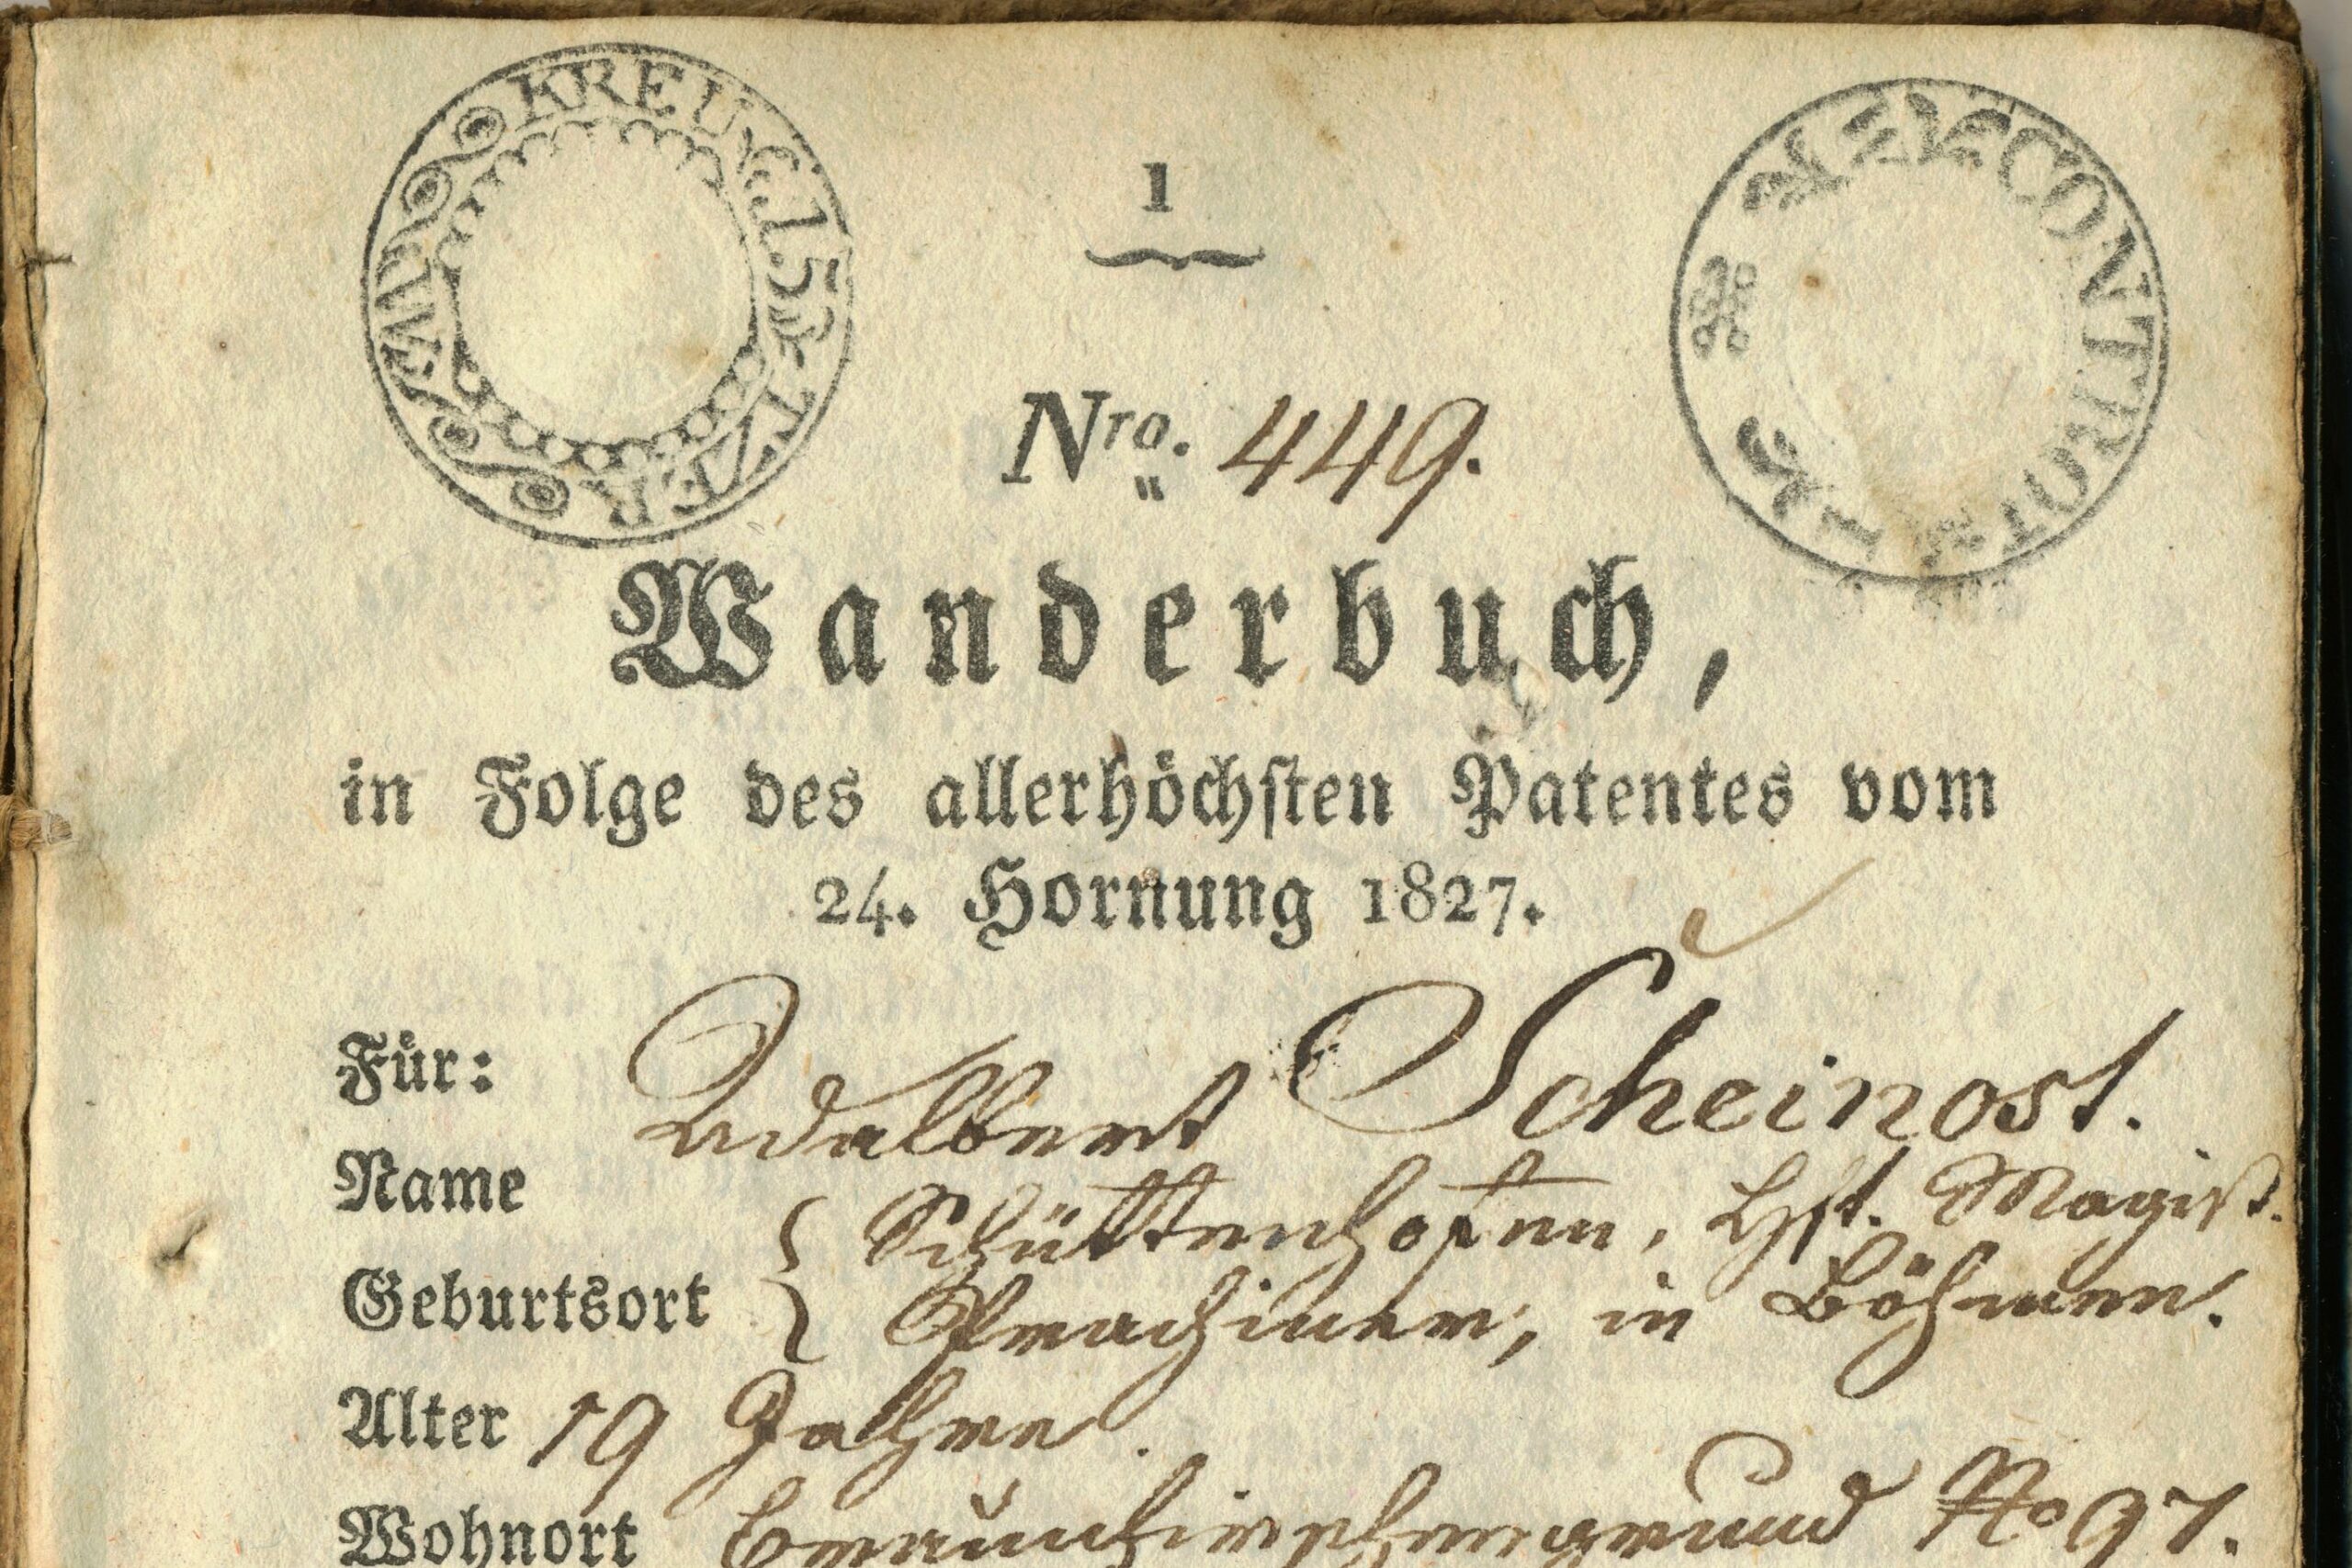 KREU 15 TZER
CONTROL
1
Nro. 449.
Wanderbuch,
in Folge des allerhöchsten Patentes vom
24. Hornung 1827.
Für: Adalbert Scheinost.
Name
Schüttenhofen, Hft. Magist.
Geburtsort Prachiner, in Böhmen.
Alter 19 Jahre.
Wohnort Braunhirschengrund No 97.